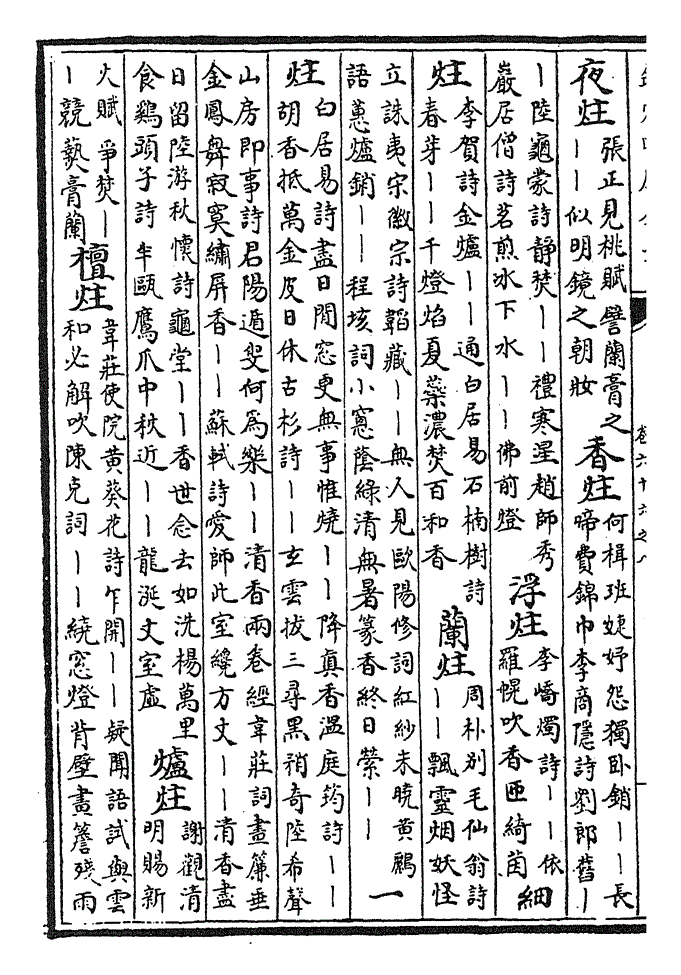 卷六十六之八
夜炷 張正見桃賦譬蘭膏之
丨丨似明鏡之朝妝
香炷 何楫班婕妤怨獨卧銷丨丨長
啼費錦巾李商隱詩劉郎舊丨
丨陸龜蒙詩靜焚丨丨禮寒星趙師秀
巖居僧詩茗煎冰下水丨丨佛前燈
浮炷 李嶠燭詩丨丨依
羅幌吹香匝綺茵
細
炷 李賀詩金爐丨丨通白居易石楠樹詩
春芽丨丨千燈焰夏蘂濃焚百和香
蘭炷 周朴别毛仙翁詩
丨丨飄靈烟妖怪
立誅夷宋徽宗詩韜藏丨丨無人見歐陽修詞紅紗未曉黄鸝
語蕙爐銷丨丨程垓詞小窓蔭綠清無暑篆香終日縈丨丨
一
炷 白居易詩盡日閒窓更無事惟燒丨丨降真香溫庭筠詩丨丨
胡香抵萬金皮日休古杉詩丨丨玄雲拔三尋黑矟奇陸希聲
山房即事詩君陽遁叟何為樂丨丨清香兩卷經韋莊詞畫簾垂
金鳳舞寂寞繡屏香丨丨蘇軾詩愛師此室纔方丈丨丨清香盡
日留陸游秋懷詩龜堂丨丨香世念去如洗楊萬里
食鷄頭子詩半甌鷹爪中秋近丨丨龍涎丈室虛
爐炷 謝觀清
明賜新
火賦爭焚丨
丨競爇膏蘭
檀炷 韋莊使院黄葵花詩乍開丨丨疑聞語試與雲
和必解吹陳克詞丨丨繞窓燈背壁畫簷殘雨